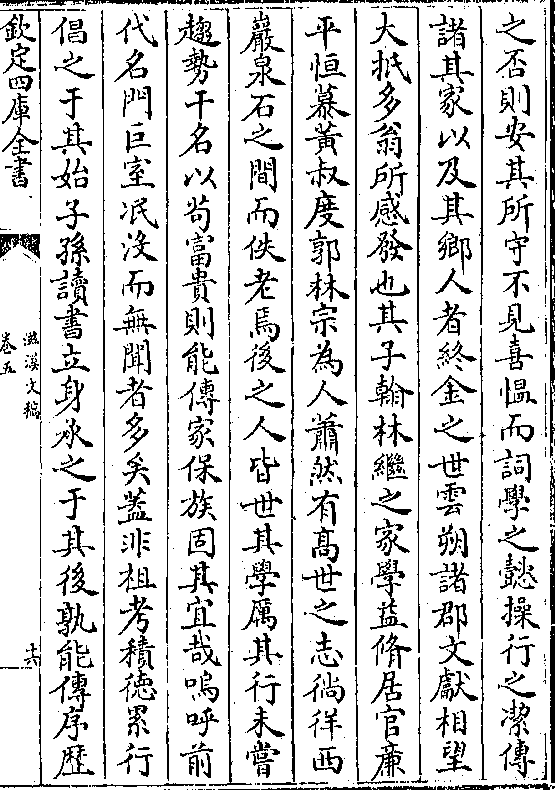 之否則安其所守不見喜愠而詞學之懿操行之潔傳
諸其家以及其鄉人者終金之世雲朔諸郡文獻相望
大抵多翁所感發也其子翰林繼之家學益脩居官廉
平恒慕黃叔度郭林宗為人蕭然有髙世之志徜徉西
巖泉石之間而佚老焉後之人皆世其學厲其行未嘗
趨勢干名以茍富貴則能傳家保族固其宜哉嗚呼前
代名門巨室冺沒而無聞者多矣蓋非祖考積徳累行
倡之于其始子孫讀書立身承之于其後孰能傳序歴
欽定四庫全書
滋溪文稿
卷五
十六